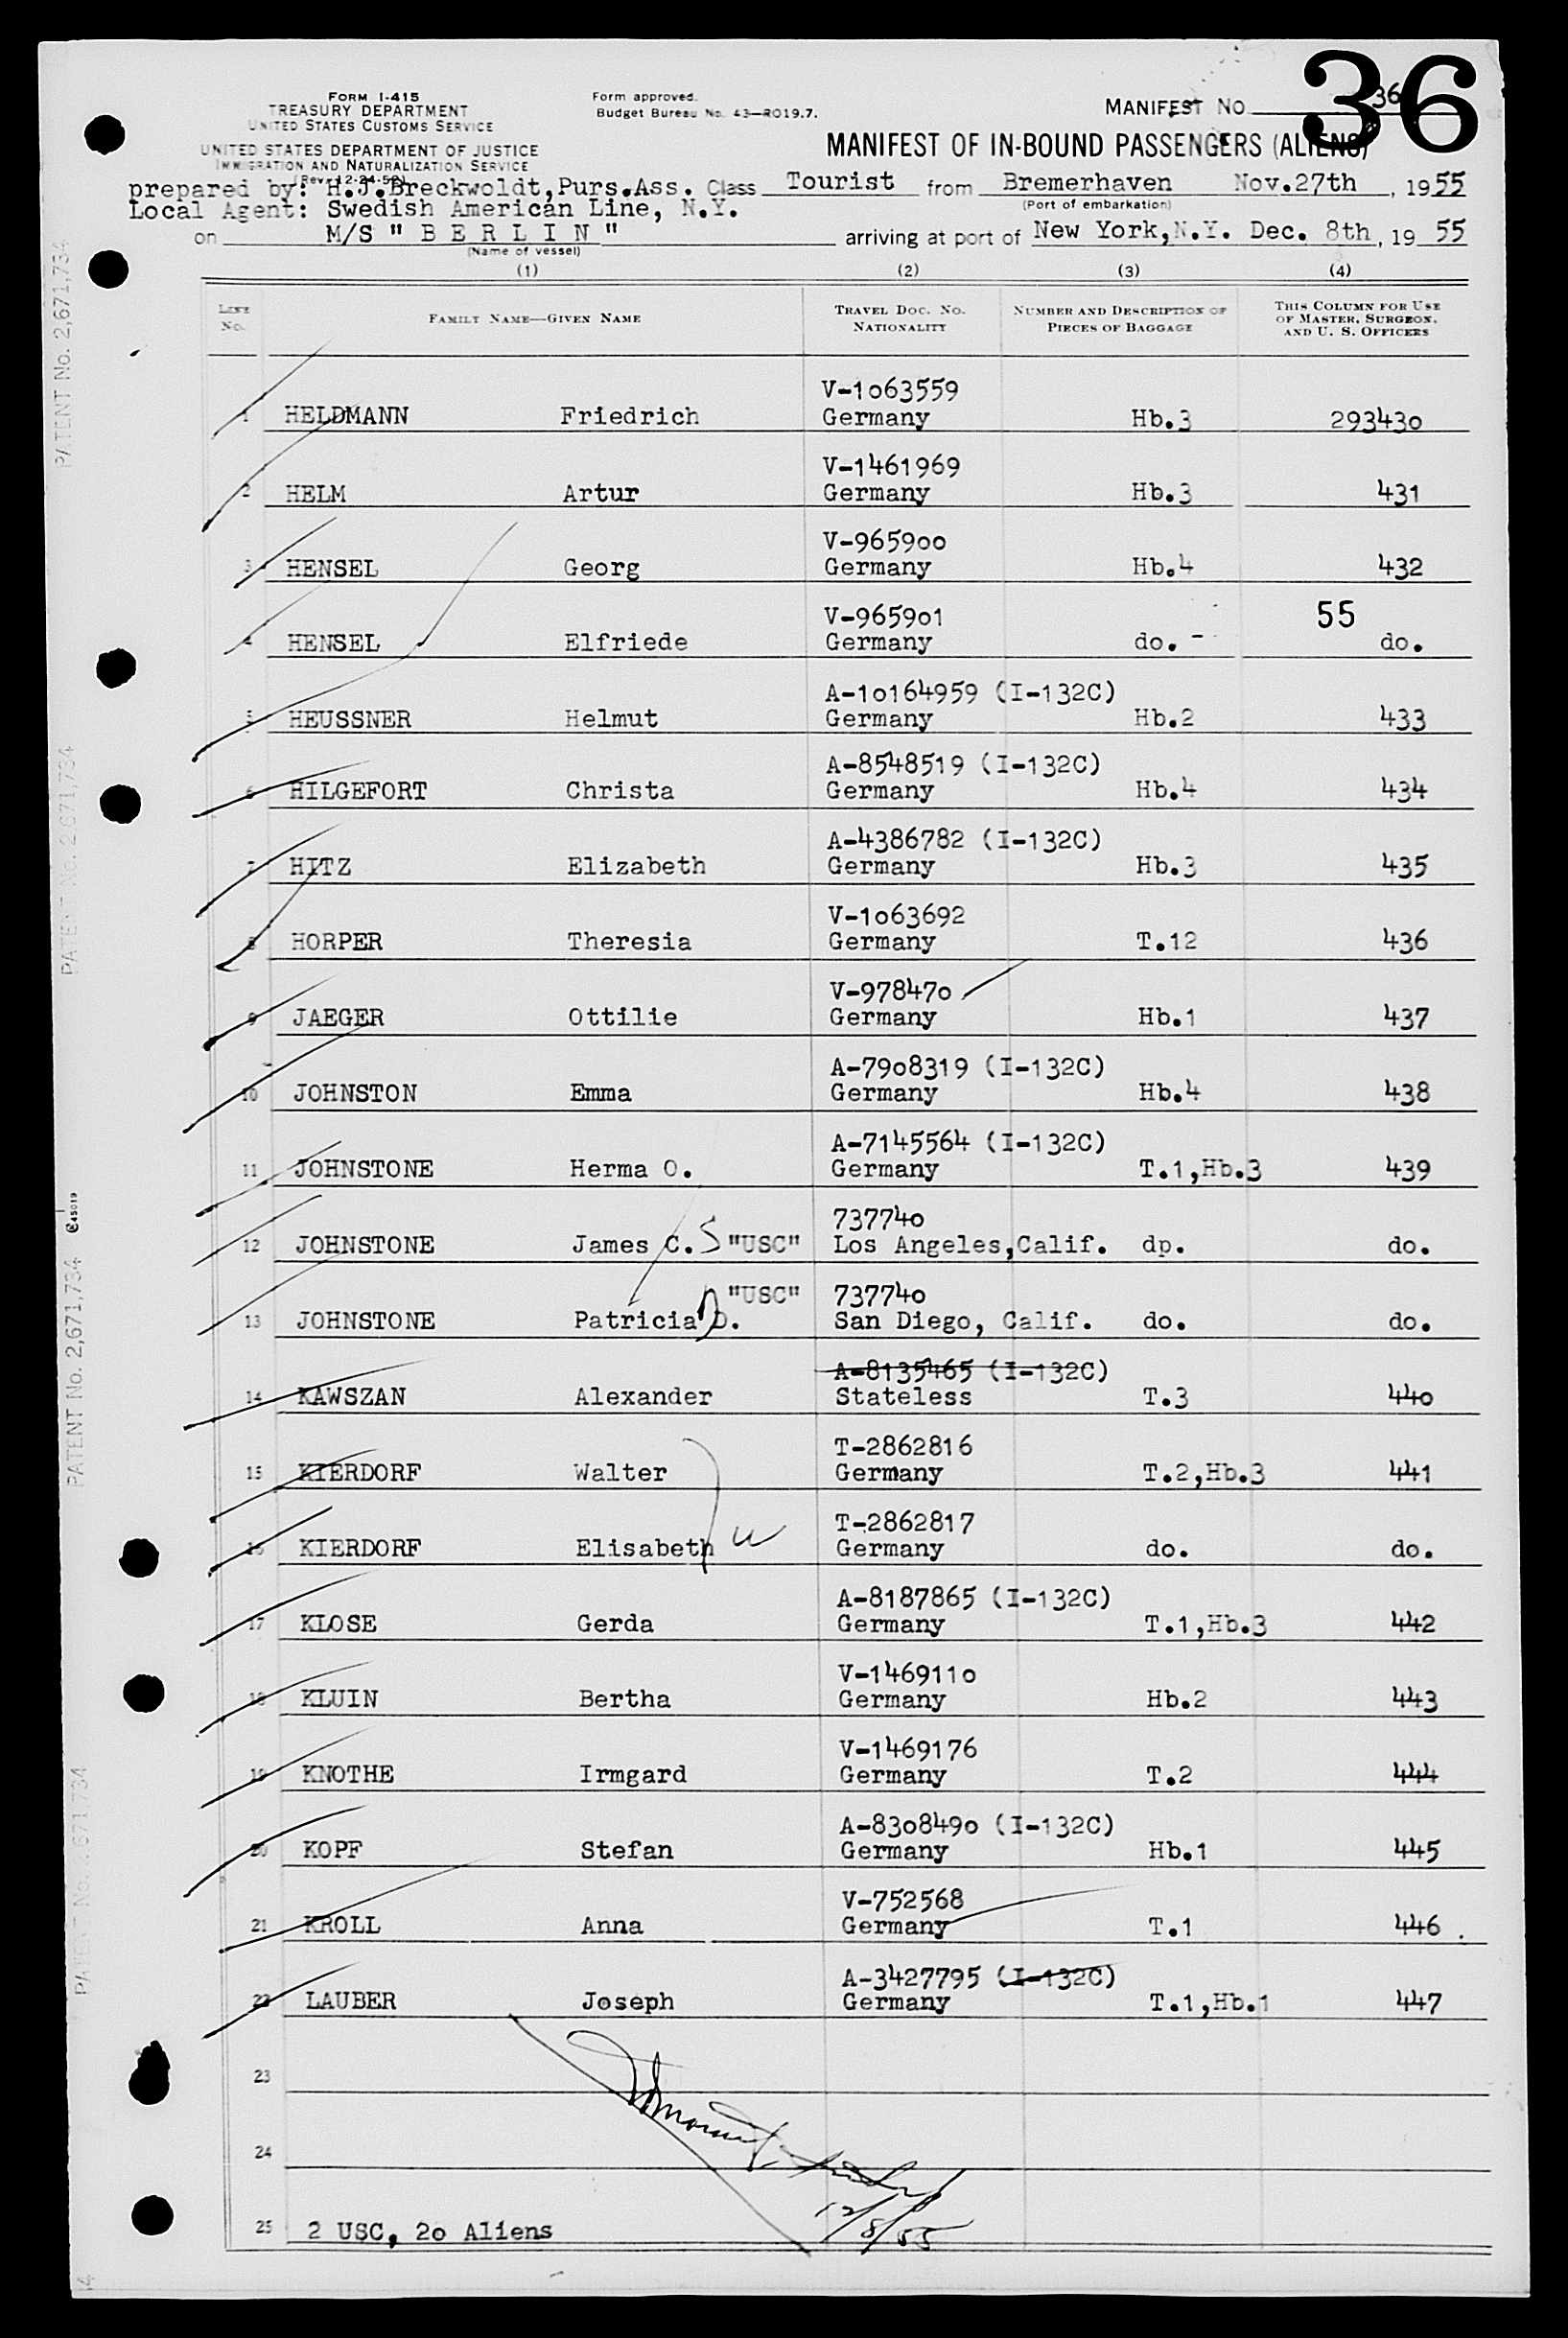 36
FORM I-415
TREASURY DEPARTMENT
UNITED STATES CUSTOMS SERVICE
UNITED STATES DEPARTMENT OF JUSTICE
IMMIGRATION AND NATURALIZATION SERVICE
(Rev. 12-24-52)
Form approved.
Budget Bureau No. 43—RO19.7.
MANIFEST NO. 36
MANIFEST OF IN-BOUND PASSENGERS (ALIENS)
prepared by: H.J.Breckwoldt,Purs.Ass. Class Tourist from Bremerhaven Nov.27th, 1955
(Port of embarkation)
Local Agent: Swedish American Line, N.Y.
on M/S " B E R L I N " arriving at port of New York,N.Y. Dec. 8th, 1955
(Name of vessel)
(1) (2) (3) (4)
LINE NO. FAMILY NAME—GIVEN NAME TRAVEL DOC. NO. NATIONALITY NUMBER AND DESCRIPTION OF PIECES OF BAGGAGE THIS COLUMN FOR USE OF MASTER, SURGEON, AND U. S. OFFICERS
V-1063559
1 HELDMANN Friedrich Germany Hb.3 293430
V-1461969
2 HELM Artur Germany Hb.3 431
V-965900
3 HENSEL Georg Germany Hb.4 432
V-965901 55
4 HENSEL Elfriede Germany do. - do.
A-10164959 (I-132C)
5 HEUSSNER Helmut Germany Hb.2 433
A-8548519 (I-132C)
6 HILGEFORT Christa Germany Hb.4 434
A-4386782 (I-132C)
7 HITZ Elizabeth Germany Hb.3 435
V-1063692
8 HORPER Theresia Germany T.12 436
V-978470
9 JAEGER Ottilie Germany Hb.1 437
A-7908319 (I-132C)
10 JOHNSTON Emma Germany Hb.4 438
A-7145564 (I-132C)
11 JOHNSTONE Herma O. Germany T.1,Hb.3 439
737740
12 JOHNSTONE James C. S "USC" Los Angeles,Calif. dp. do.
"USC" 737740
13 JOHNSTONE Patricia D. San Diego, Calif. do. do.
A-8135465 (I-132C)
14 KAWSZAN Alexander Stateless T.3 440
T-2862816
15 KIERDORF Walter Germany T.2,Hb.3 441
T-2862817
16 KIERDORF Elisabeth W Germany do. do.
A-8187865 (I-132C)
17 KLOSE Gerda Germany T.1,Hb.3 442
V-1469110
18 KLUIN Bertha Germany Hb.2 443
V-1469176
19 KNOTHE Irmgard Germany T.2 444
A-8308490 (I-132C)
20 KOPF Stefan Germany Hb.1 445
V-752568
21 KROLL Anna Germany T.1 446
A-3427795 (I-132C)
22 LAUBER Joseph Germany T.1,Hb.1 447
23
24
12/8/55
25 2 USC, 20 Aliens
PATENT No. 2,671,734
PATENT No. 2,671,734
PATENT No. 2,671,734
PATENT No. 2,671,734